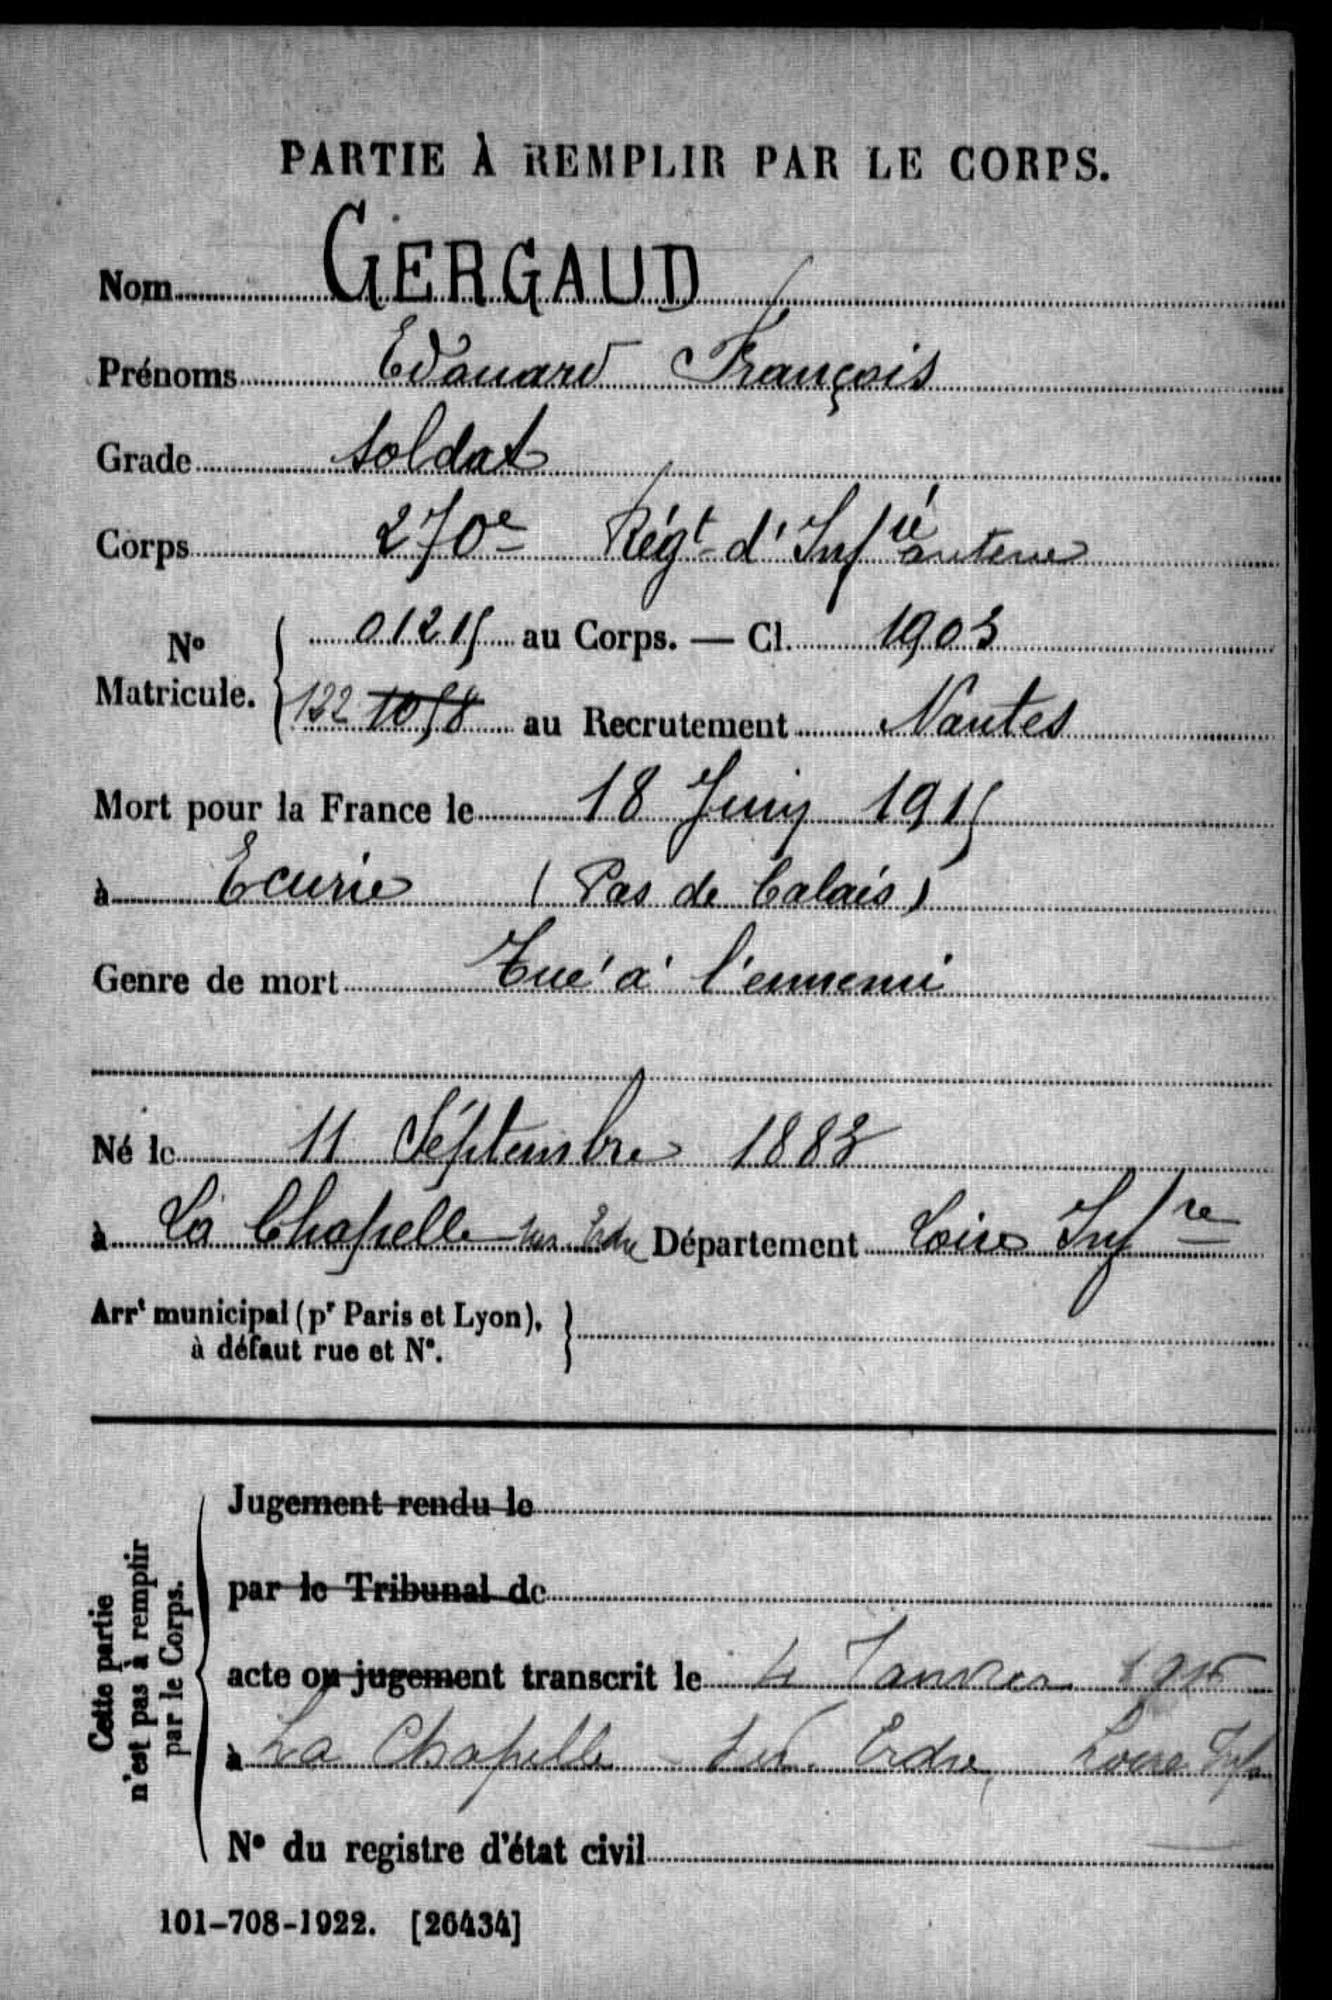 PARTIE À REMPLIR PAR LE CORPS.
Nom GERGAUD
Prénoms Edouard François
Grade Soldat
Corps 270e Régt d'Infanterie
No Matricule. 01215 au Corps. — Cl. 1903
122 1058 au Recrutement Nantes
Mort pour la France le 18 Juin 1915
à Ecurie (Pas de Calais)
Genre de mort Tué à l'ennemi
Né le 11 Séptembre 1883
à La Chapelle sur Erdre Département Loire Infre
Arrt municipal (pr Paris et Lyon),
à défaut rue et N°.
Cette partie
n'est pas à remplir
par le Corps.
Jugement rendu le
par le Tribunal de
acte ou jugement transcrit le 4 Janvier
à La Chapelle sur Erdre, Loire Infre
N° du registre d'état civil
101-708-1922. [26434]